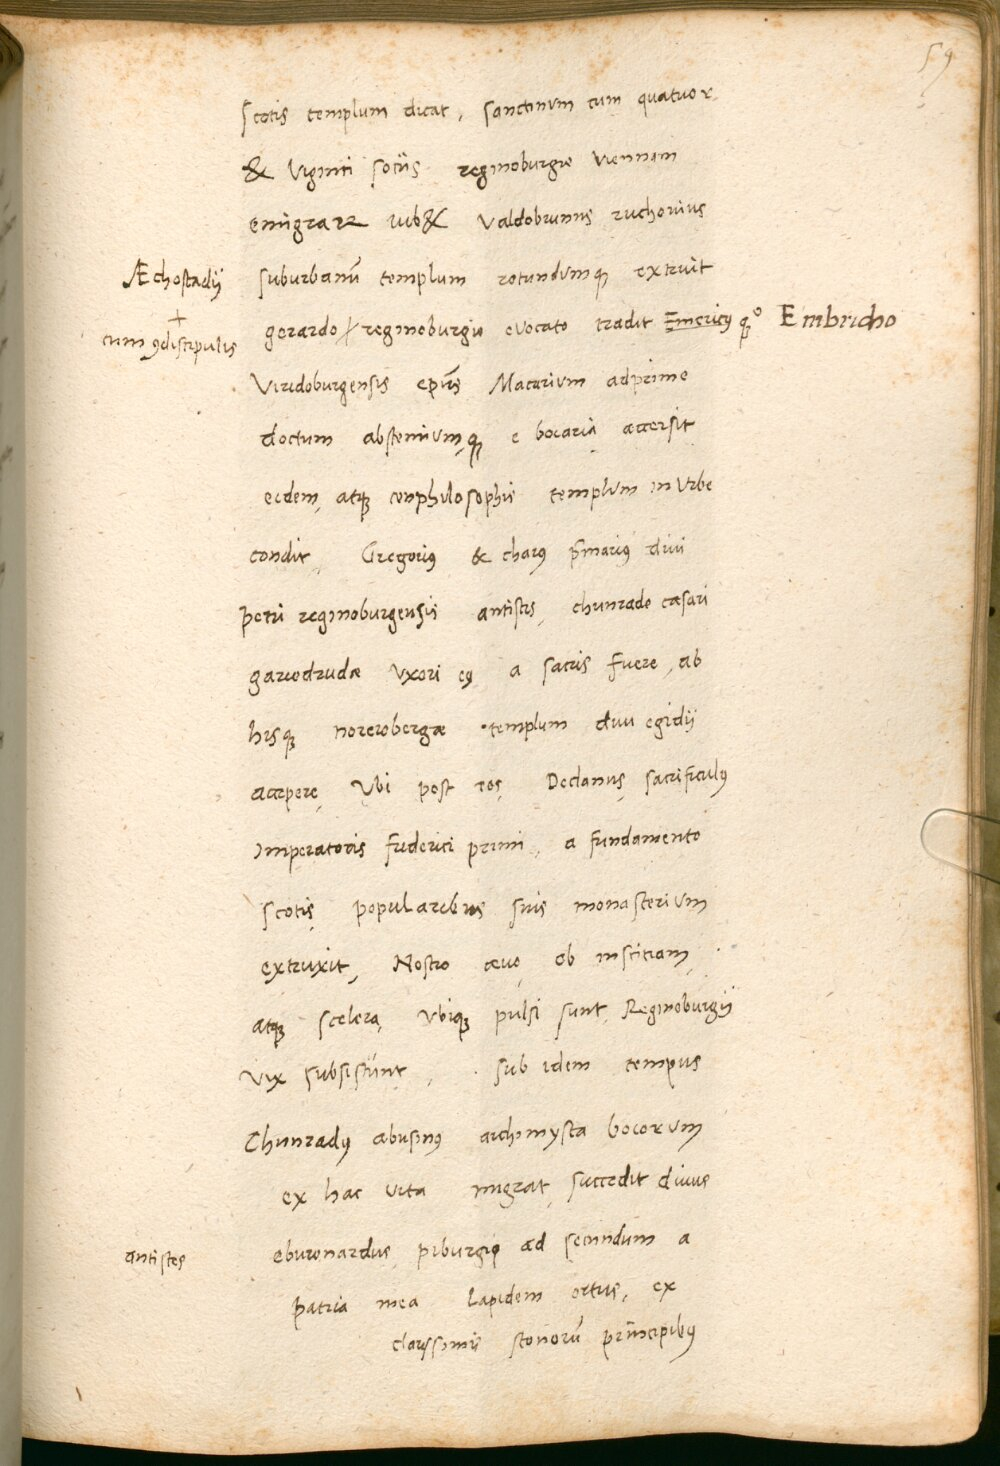 59
scotis templum dicat, sanctinum cum quatuor
& viginti sociis reginoburgio viennam
emigrare iub& Valdobrunus ruchonius
Æchostadij suburbanū templum rotundumq; extruit
cum 9discipulis gerardo reginoburgio evocato tradit Emericus q;° Embricho
Viridoburgensis epūs Macarium adprime
doctum abstemiumq; e bocaria accersit
eidem, atq; conphilosophis templum in urbe
condit, Gregorius & charus p̄marius divi
petri reginoburgensis antistes, chunrado cæsari
garwdrudæ uxori eius a sacris fuere, ab
hisq; norerobergæ templum divi egidij
accepere, Vbi post eos, Declanus, sacrificulus
imperatoris friderici primi, a fundamento
scotis, popularibus suis monasterium
extruxit, Nostro ævo, ob inscitiam,
atq; scelera, vbiq; pulsi sunt, Reginoburgij
vix subsistunt, sub idem tempus
Chunradus abusinus archimysta bocorum
ex hac vita migrat, succedit divus
antistes eburonardus piburgio ad secundum a
patria mea lapidem ortus, ex
clarissimis stonorū principibus